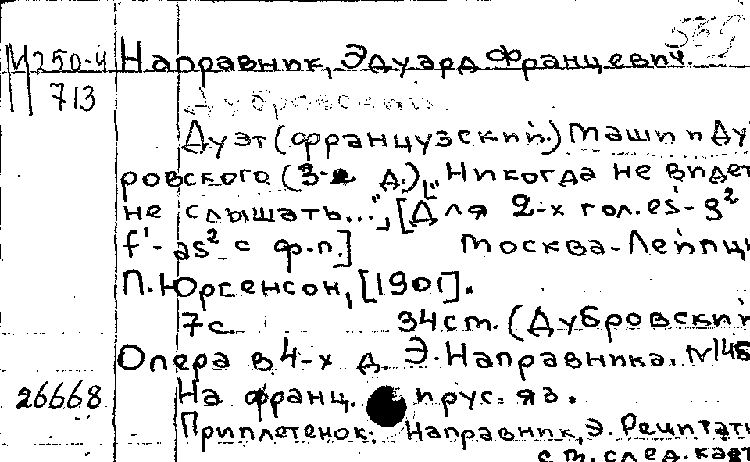 559
М250-4 Направник, Эдуард Францевич.
713 Дубровский.
Дуэт (французский.) Маши и Ду
ровского (3-е д.), "Никогда не видет
не слышать...", [Для 2-х гол. es'-g²
f'-as² с ф.п.] Москва-Лейпци
П. Юргенсон, [1901].
7 с. 34 см. (Дубровский
Опера в 4-х д. Э. Направника. №146
26668 На франц. и рус. яз.
Приплетенок: Направник, Э. Речитати
см. след. карт